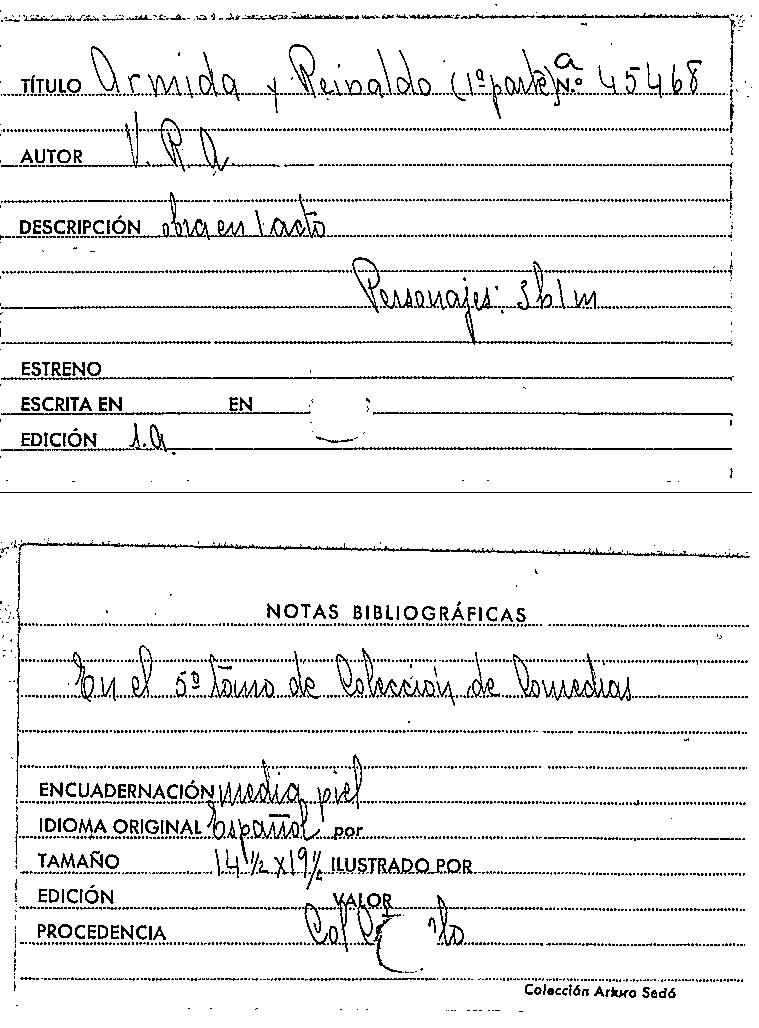 TÍTULO Armida y Reinaldo (1ª parte) Nº 45468
AUTOR V. R. A
DESCRIPCIÓN obra en 1 acto
Personajes: 3h 1m
ESTRENO
ESCRITA EN EN
EDICIÓN s.a.
NOTAS BIBLIOGRÁFICAS
En el 5º tomo de Colección de Comedias
ENCUADERNACIÓN media piel
IDIOMA ORIGINAL Español por
TAMAÑO 14 1/2 X 19 1/2 ILUSTRADO POR
EDICIÓN VALOR
PROCEDENCIA Col
Colección Arturo Sedó